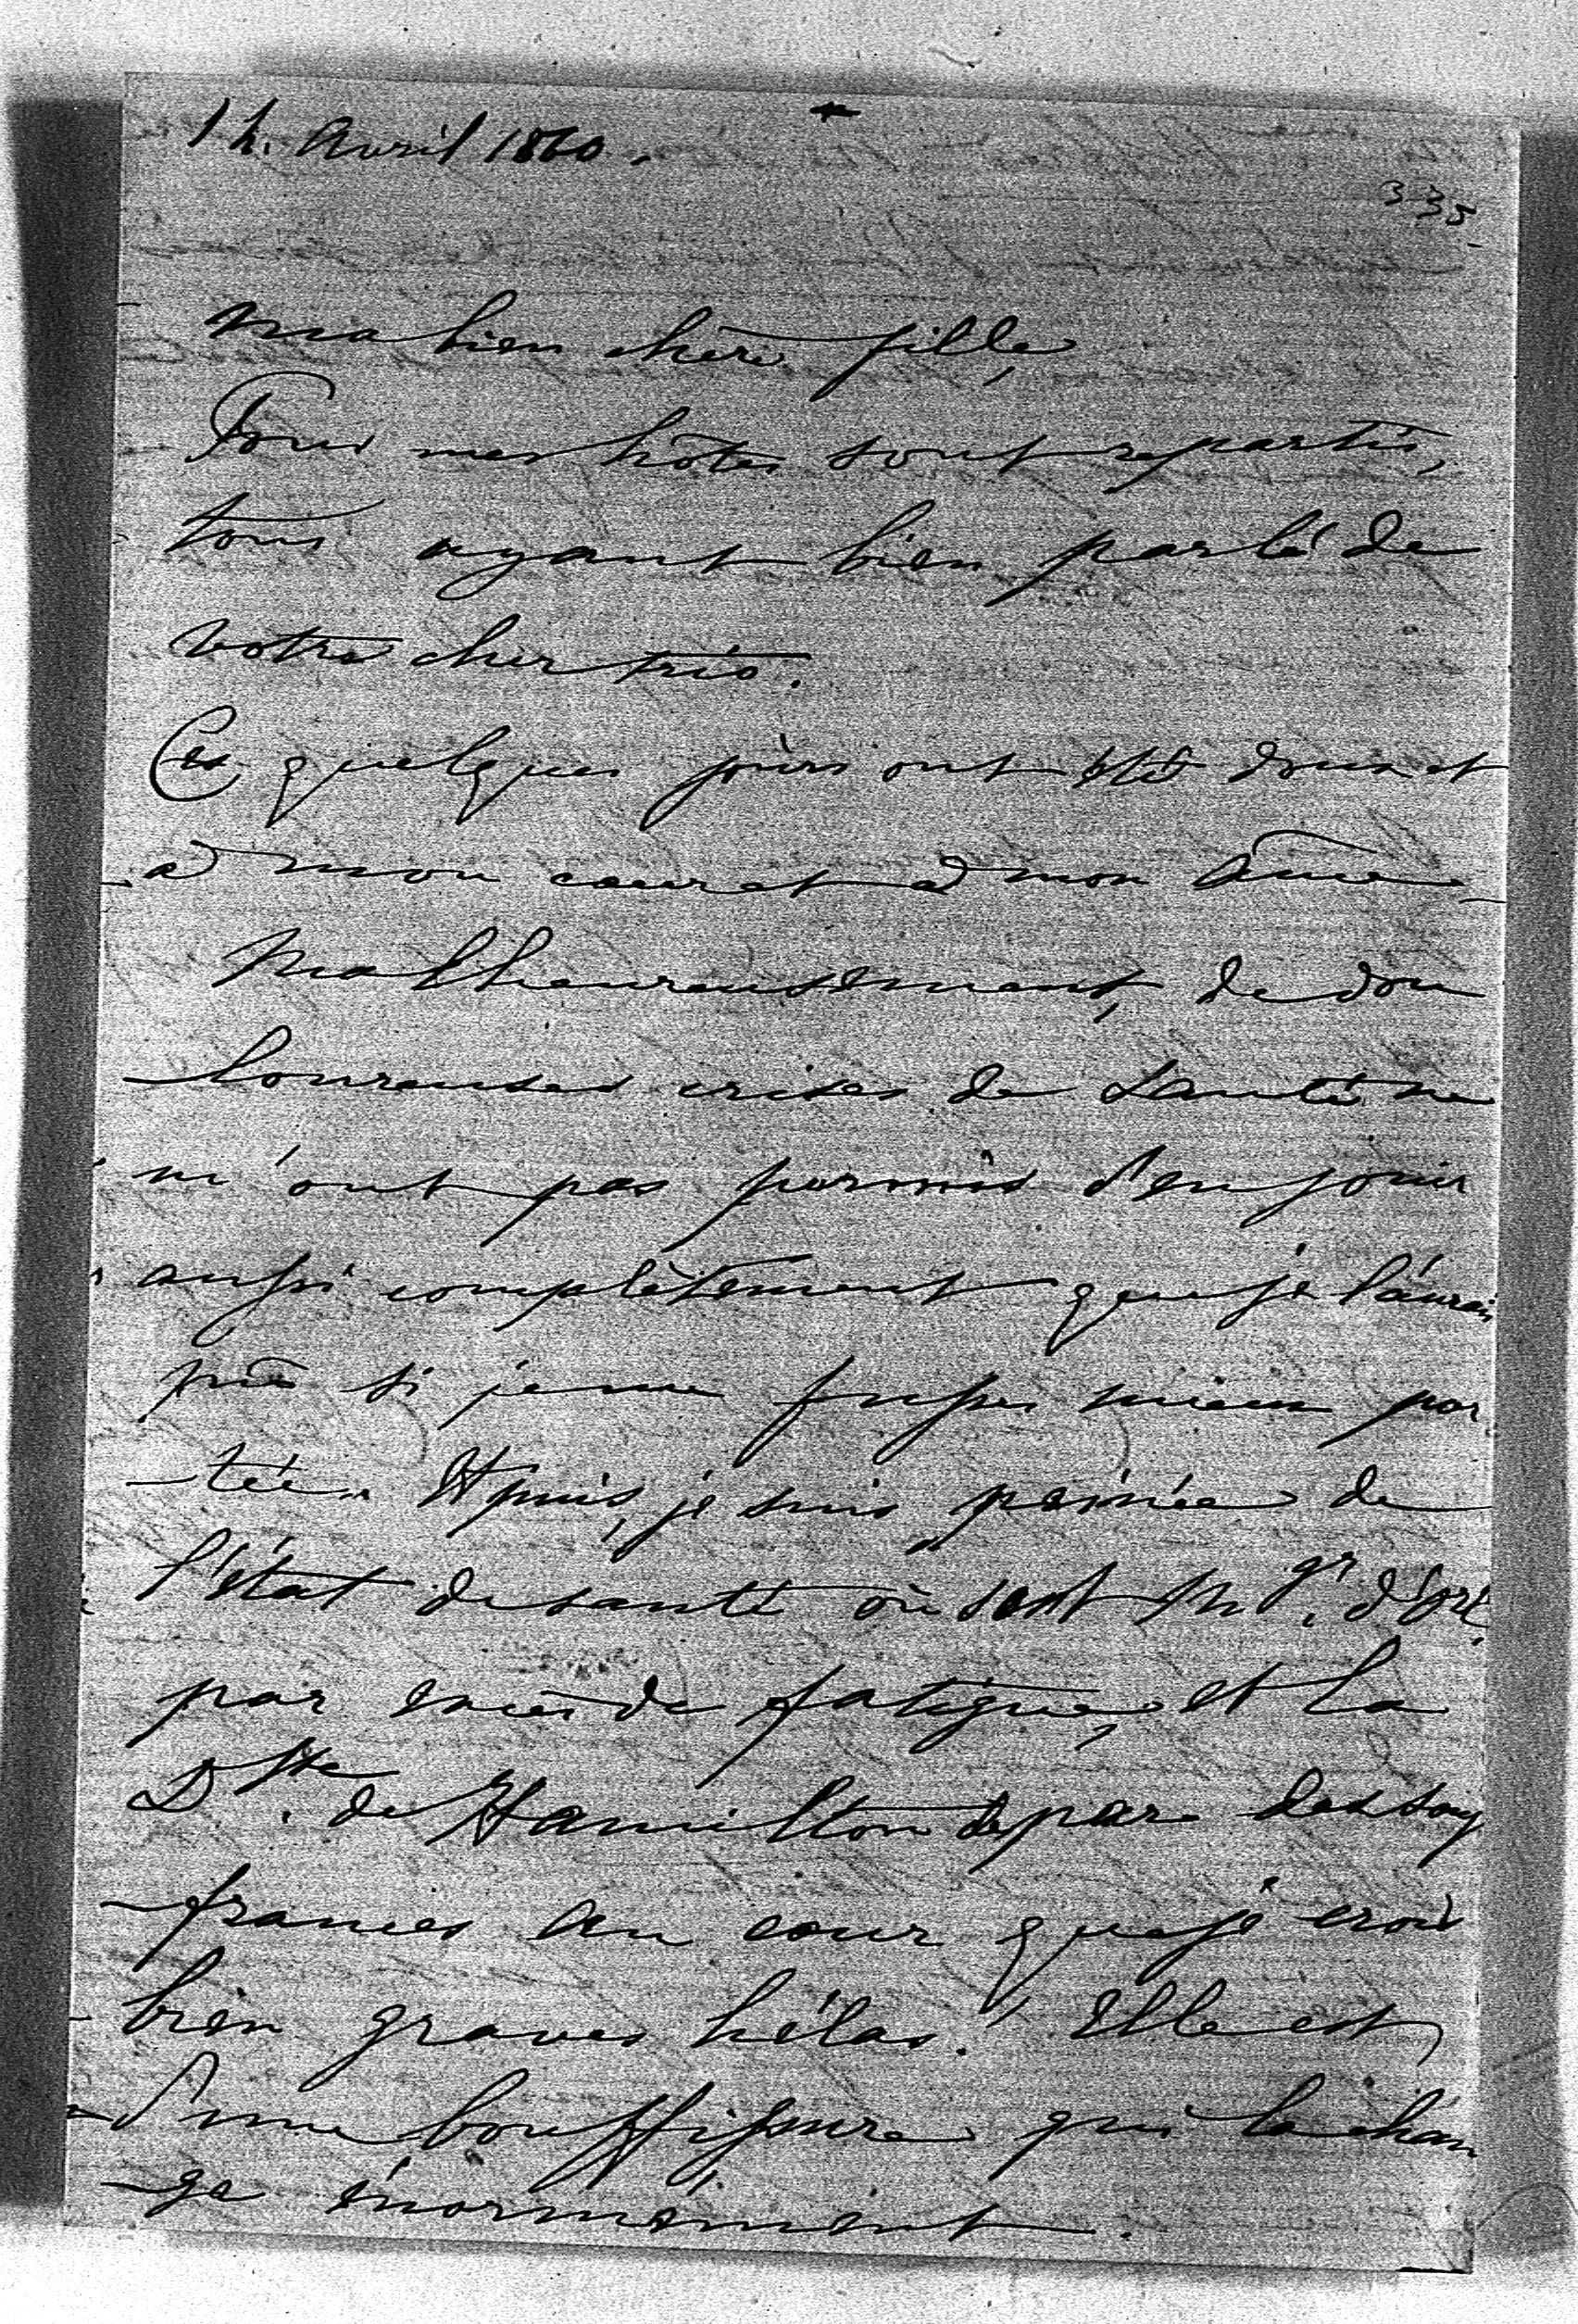 12. Avril 1860.
335
Ma bien chère fille,
Tous mes hôtes sont repartis,
tous ayant bien parlé de
votre cher trio.
Ces quelques jours ont été doux et
à mon cœur et à mon âme
Malheureusement, de dou
loureuses crises de santé ne
m'ont pas permis d'en jouir
aussi complètement que je l'aurais
pû si je me fusse mieux por
-tée. Et puis, je suis peinée de
l'état de santé où sont Mgr.
par excès de fatigue, et la
Dsse. de Hamilton de par des souf
-frances au cœur que je crois
bien graves hélas! Elle est
d'une bouffissure qui la chan
-ge énormément.